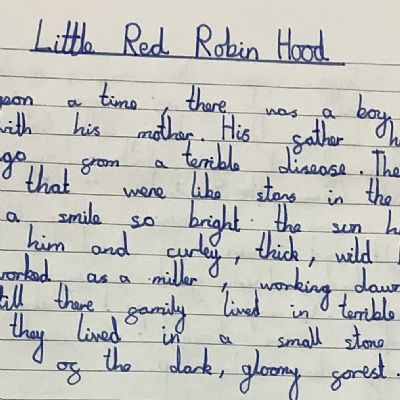 Little Red Robin Hood
a time, there was a boy
with his mother. His father
go from a terrible disease. The
that were like stars in the
a smile so bright the sun
him and curley, thick, wild
worked as a miller, working dawn
till there family lived in terrible
they lived in a small stone
of the dark, gloomy forest.